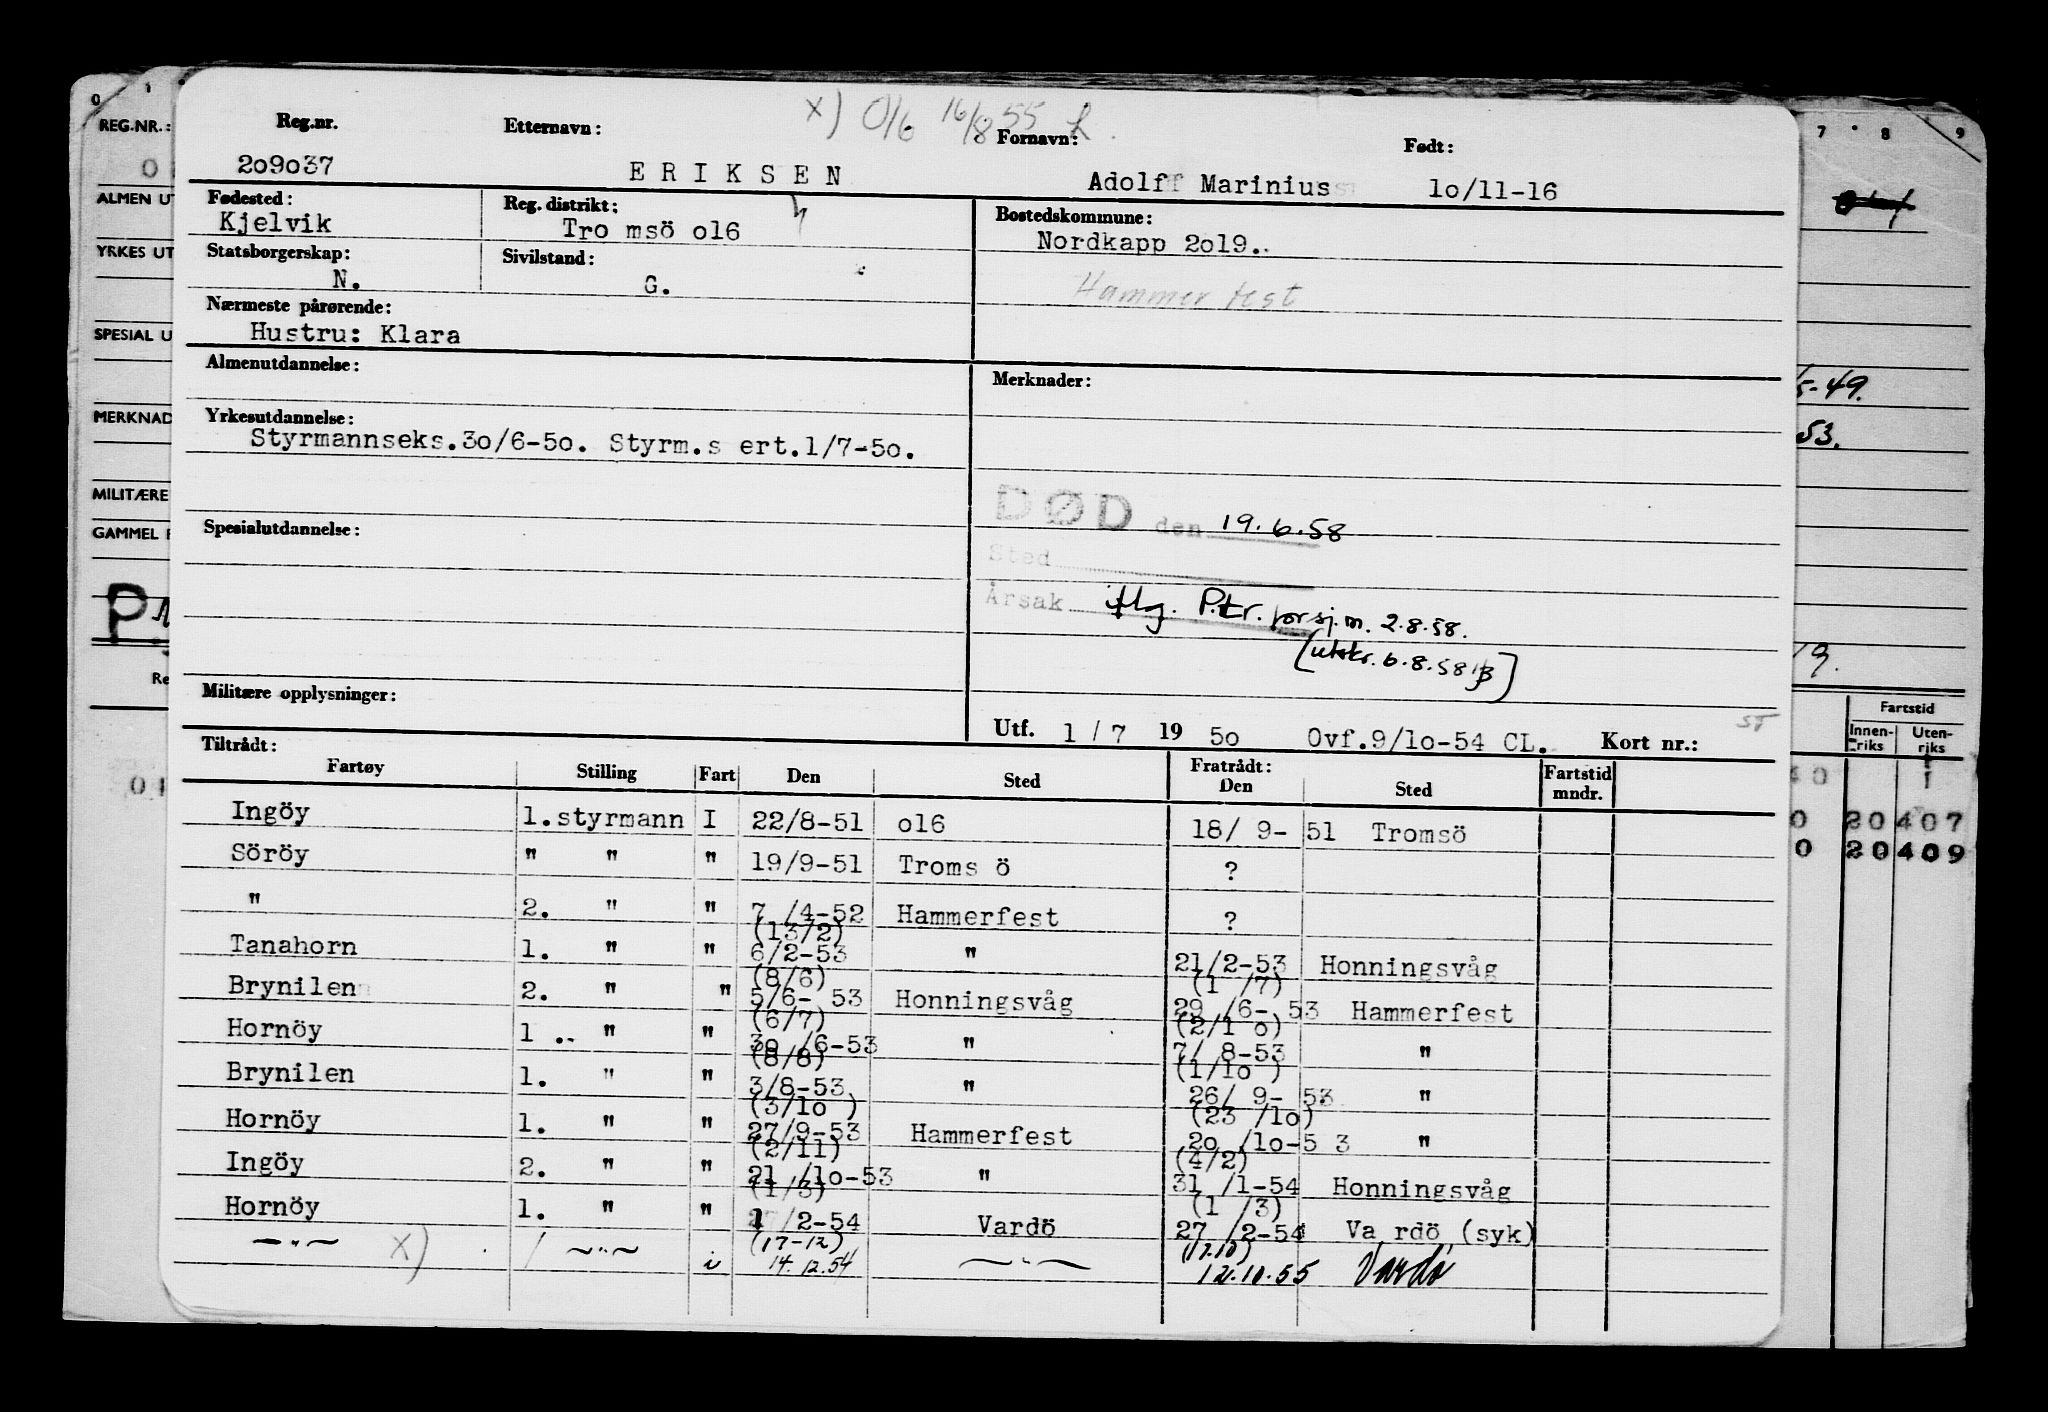 x) O/6 16/8 55
Reg.nr. Etternavn: Fornavn: Født:
209037 ERIKSEN Adolf Marinius 10/11-16
Fødested: Reg. distrikt: Bostedskommune:
Kjelvik Tro msö o16 Nordkapp 2o19.
Statsborgerskap: Sivilstand:
N. G. Hammerfest
Nærmeste pårørende:
Hustru: Klara
Almenutdannelse: Merknader:
Yrkesutdannelse:
Styrmannseks.3o/6-5o. Styrm.s ert.1/7-5o.
DØD den 19.6.58
Spesialutdannelse:
Sted
Årsak iflg. P.tr. for sj.m. 2.8.58.
[utskr. 6.8.58 ]
Militære opplysninger:
Utf. 1/7 19 5o Ovf.9/1o-54 CL. Kort nr.:
Tiltrådt: Fratrådt:
Fartøy Stilling Fart Den Sted Den Sted Fartstid mndr.
Ingöy 1.styrmann I 22/8-51 o16 18/ 9- 51 Tromsö
Söröy " " " 19/9-51 Troms ö ?
" 2. " " 7 /4-52 Hammerfest ?
Tanahorn 1. " " (13/2) 6/2-53 " 21/2-53 Honningsvåg
Brynilen 2. " " (8/6) 5/6- 53 Honningsvåg (1 /7) 29 /6- 53 Hammerfest
Hornöy 1 .. " " (6/7) 3o /6-53 " (2/1 o) 7/ 8-53 "
Brynilen 1. " " (8/8) 3/8-53 " (1/1o ) 26/ 9- 53 "
Hornöy 1. " " (3/1o ) 27/9-53 Hammerfest (23 /1o) 2o /1o-5 3 "
Ingöy 2. " " (2/11) 21 /1o-53 " (4/2) 31 /1-54 Honningsvåg
Hornöy 1. " " (1/3) 1 /2-54 Vardö (1 /3) 27 /2-54 Va rdö (syk)
—"— x) 1 —"— i (17-12) 14.12.54 —"— (17.10) 12.10.55 Vardö
0 1
REG.NR.:
ALMEN UT
YRKES UT
SPESIAL U
MERKNAD
MILITÆRE
GAMMEL
Re
7 8 9
-49.
53.
19.
Fartstid
Innenriks Utenriks
0 20407
0 20409